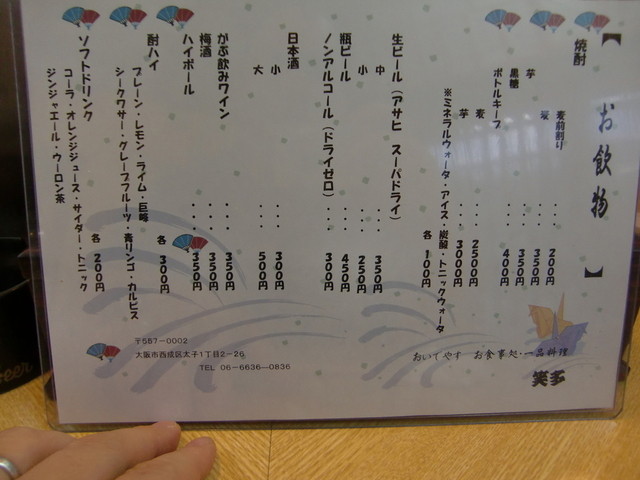 【 お飲物 】
焼酎
麦前割り ... 200円
麦 ... 350円
芋 ... 350円
黒糖 ... 400円
ボトルキープ
麦 ... 2500円
芋 ... 3000円
※ミネラルウォータ・アイス・炭酸・トニックウォータ 各 100円
生ビール（アサヒ スーパドライ）
中 ... 350円
小 ... 250円
瓶ビール ... 450円
ノンアルコール（ドライゼロ） ... 300円
日本酒
小 ... 300円
大 ... 500円
がぶ飲みワイン ... 350円
梅酒 ... 350円
ハイボール ... 350円
酎ハイ 各 300円
プレーン・レモン・ライム・巨峰
シークワサー・グレープフルーツ・青リンゴ・カルピス
ソフトドリンク 各 200円
コーラ・オレンジジュース・サイダー・トニック
ジンジャエール・ウーロン茶
おいでやす お食事処・一品料理
笑多
〒557-0002
大阪市西成区太子1丁目2-26
TEL 06-6636-0836